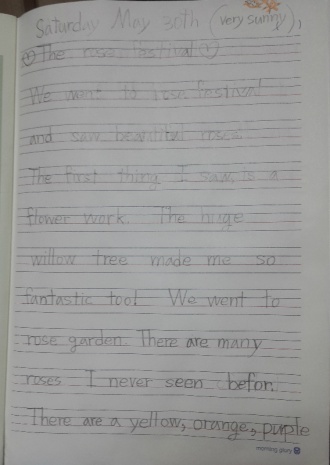 Saturday May 30th (very sunny)
The rose festival
We went to rose festival
and saw beautiful roses
The first thing I saw is a
flower work. The huge
willow tree made me so
fantastic too! We went to
rose garden. There are many
roses I never seen befor.
There are a yellow, orange, purple
morning glory